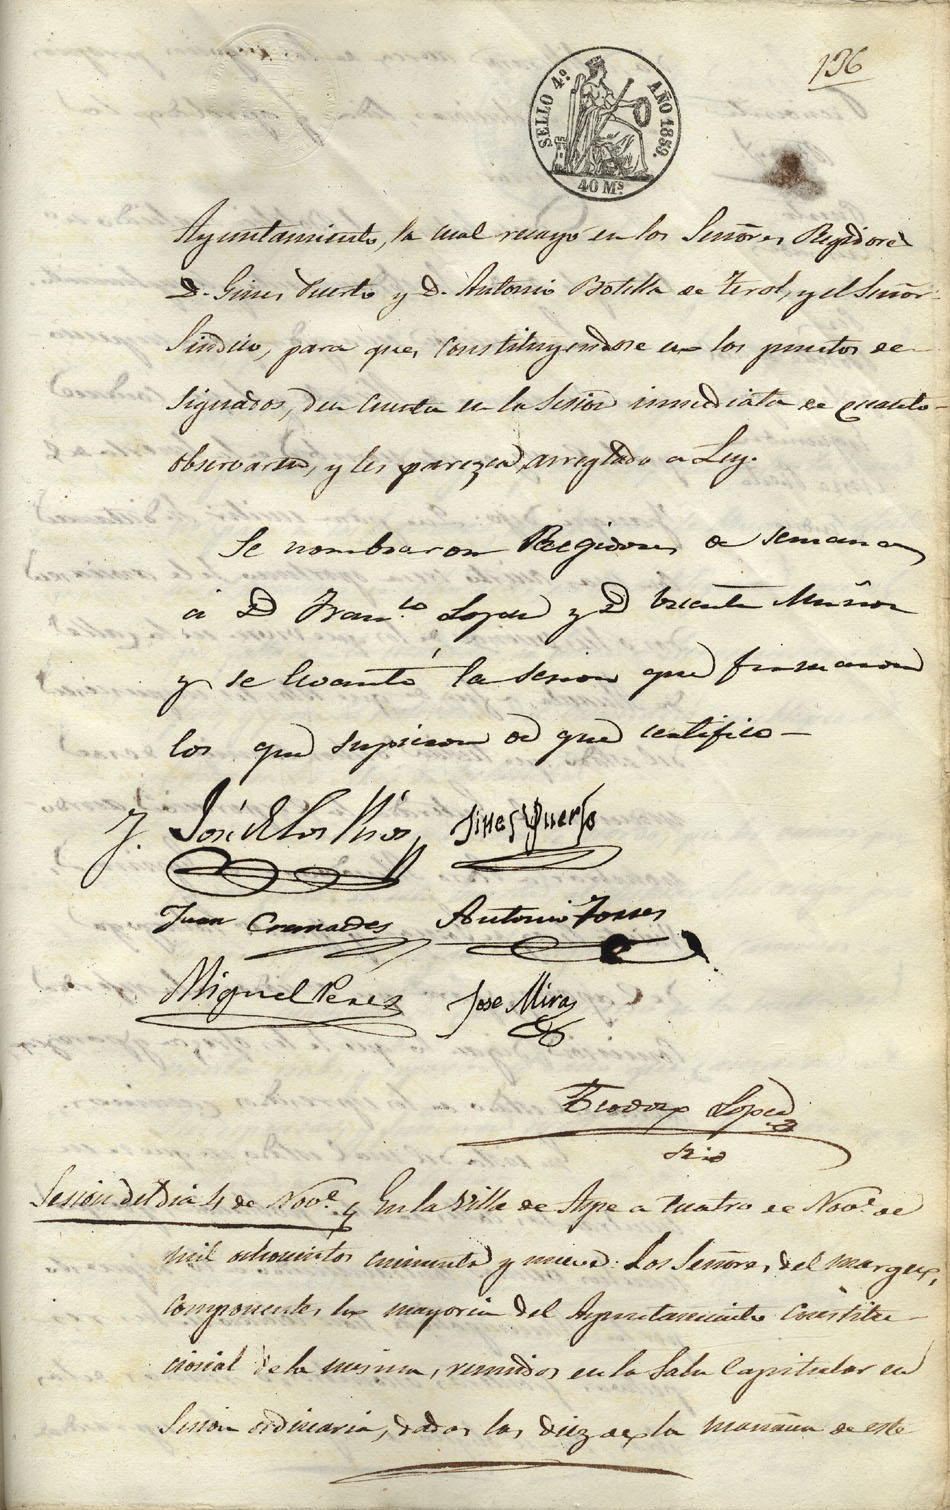 136
SELLO 4º. AÑO 1859.
40 Ms.
Ayuntamiento, la cual recayo en los Señores Regidores
D. Gines Puerto y D. Antonio Botella de Terol, y el Señor
Sindico, para que, constituyendose en los puntos de-
signados, den cuenta en la sesion inmediata de cuanto
observaren, y les parezca arreglado a Ley.
Se nombraron Regidores de semana
á D Franco. Lopez y D Vicente Muñoz
y se levantó la sesion que firmaron
los que supieron de que certifico—
José de los Rios
Gines Puerto
Juan Cremades
Antonio Torres
Miguel Perez
Jose Miras
Teodoro Lopez
Srio
Sesion del dia 4 de Nove. En la Villa de Aspe a cuatro de Nove. de
mil ochocientos cincuenta y nueve: Los Señores del margen,
componentes la mayoria del Ayuntamiento Constitu-
cional de la misma, reunidos en la Sala Capitular en
Sesion ordinaria, dadas las diez de la mañana de este